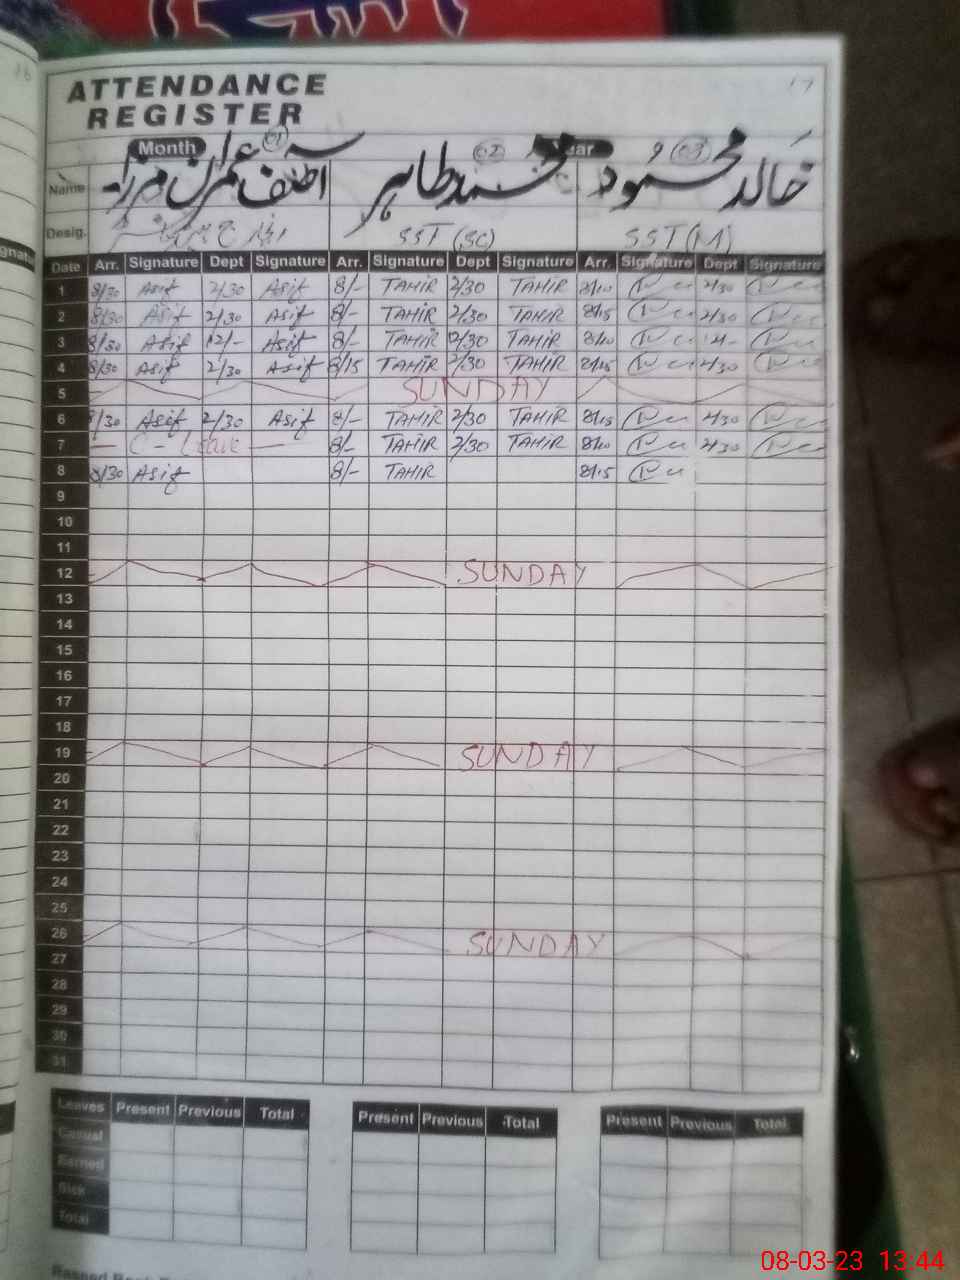 17
ATTENDANCE
REGISTER
Month 01 02 03
Name آصف عمران مرزا محمد طاہر خالد محمود
Desig. انچارج SST (SC) SST (M)
Date Arr. Signature Dept Signature Arr. Signature Dept Signature Arr. Signature Dept Signature
1 8/30 Asif 2/30 Asif 8/- TAHIR 2/30 TAHIR 8/10 2/30
2 8/30 Asif 2/30 Asif 8/- TAHIR 2/30 TAHIR 8/15 2/30
3 8/30 Asif 12/- Asif 8/- TAHIR 12/30 TAHIR 8/10 12/-
4 8/30 Asif 2/30 Asif 8/15 TAHIR 2/30 TAHIR 8/15 2/30
5 SUNDAY
6 8/30 Asif 2/30 Asif 8/- TAHIR 2/30 TAHIR 8/15 2/30
7 — C - Leave — 8/- TAHIR 2/30 TAHIR 8/10 2/30
8 8/30 Asif 8/- TAHIR 8/15
9
10
11
12 SUNDAY
13
14
15
16
17
18
19 SUNDAY
20
21
22
23
24
25
26 SUNDAY
27
28
29
30
31
Leaves Present Previous Total Present Previous Total Present Previous Total
Casual
Earned
Sick
Total
08-03-23 13:44